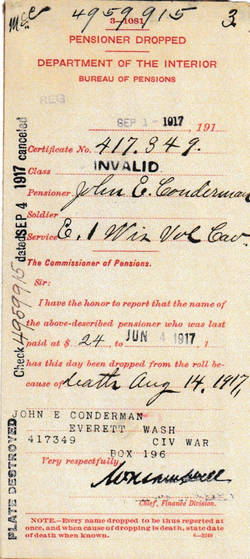 Mc 4959915 3.
3—1081
PENSIONER DROPPED
DEPARTMENT OF THE INTERIOR
BUREAU OF PENSIONS
REG
SEP 4 - 1917 , 191
Certificate No. 417.349.
Class INVALID
Pensioner John E. Conderman
Soldier
Service E. 1 Wis Vol Cav.
The Commissioner of Pensions.
Sir:
I have the honor to report that the name of
the above-described pensioner who was last
paid at $ 24 to JUN 4 1917 , 1
has this day been dropped from the roll be-
cause of death Aug 14, 1917,
JOHN E CONDERMAN
EVERETT WASH
417349 CIV WAR
BOX 196
Very respectfully,
Chief, Finance Division.
NOTE.—Every name dropped to be thus reported at
once, and when cause of dropping is death, state date
of death when known.
Check 4959915 dated SEP 4 1917 canceled
PLATE DESTROYED